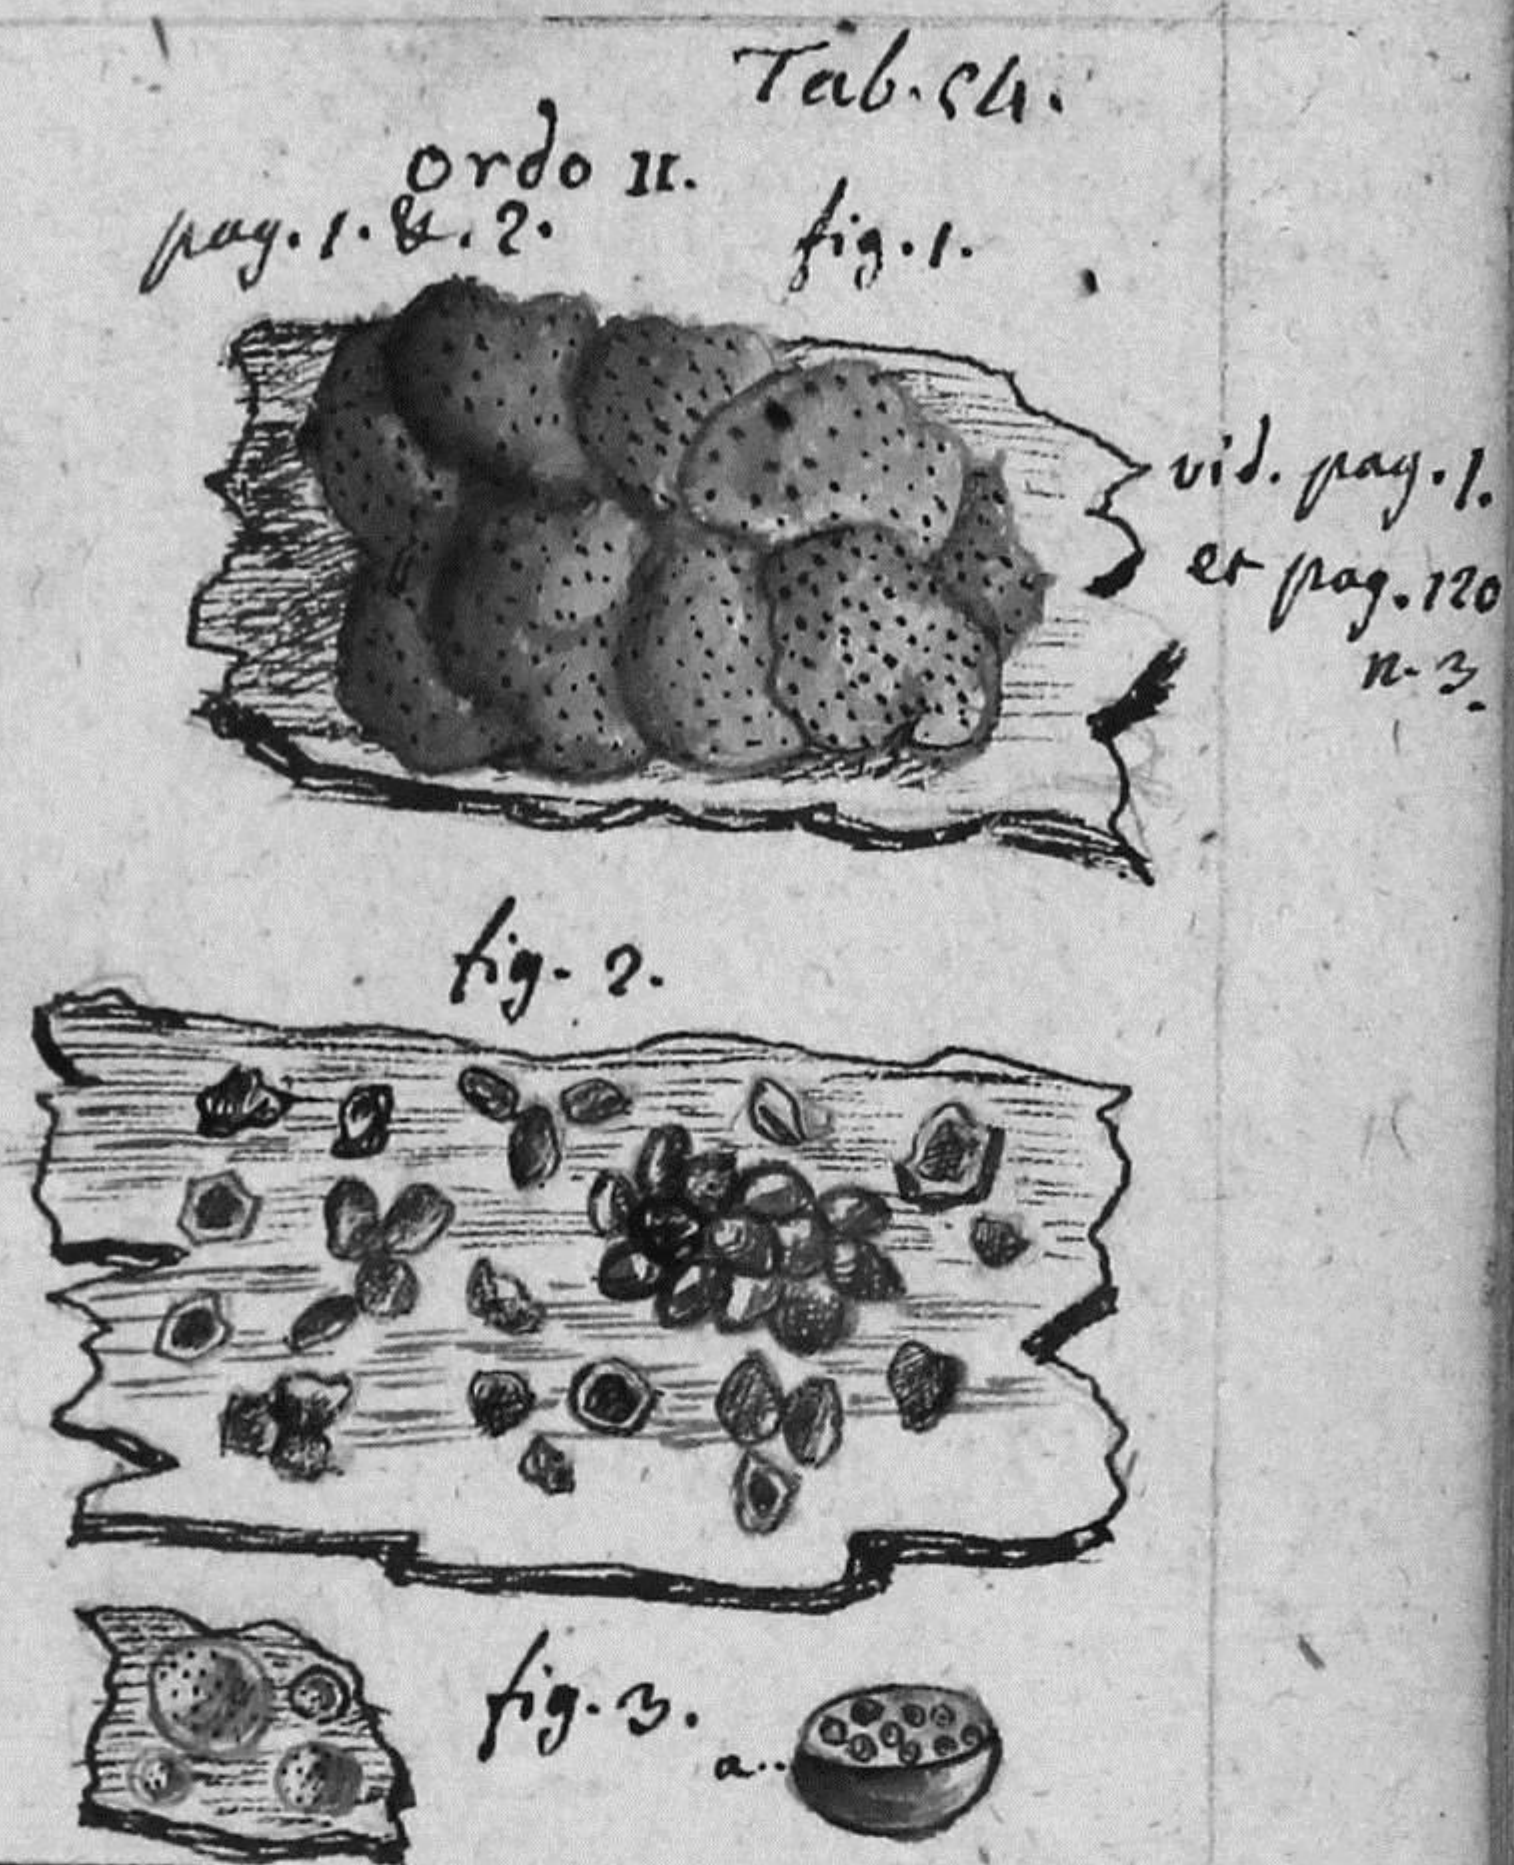 Tab. 54.
ordo II.
pag. 1. &. 2.
fig. 1.
vid. pag. 1.
et pag. 120
n. 3.
fig. 2.
fig. 3.
a..